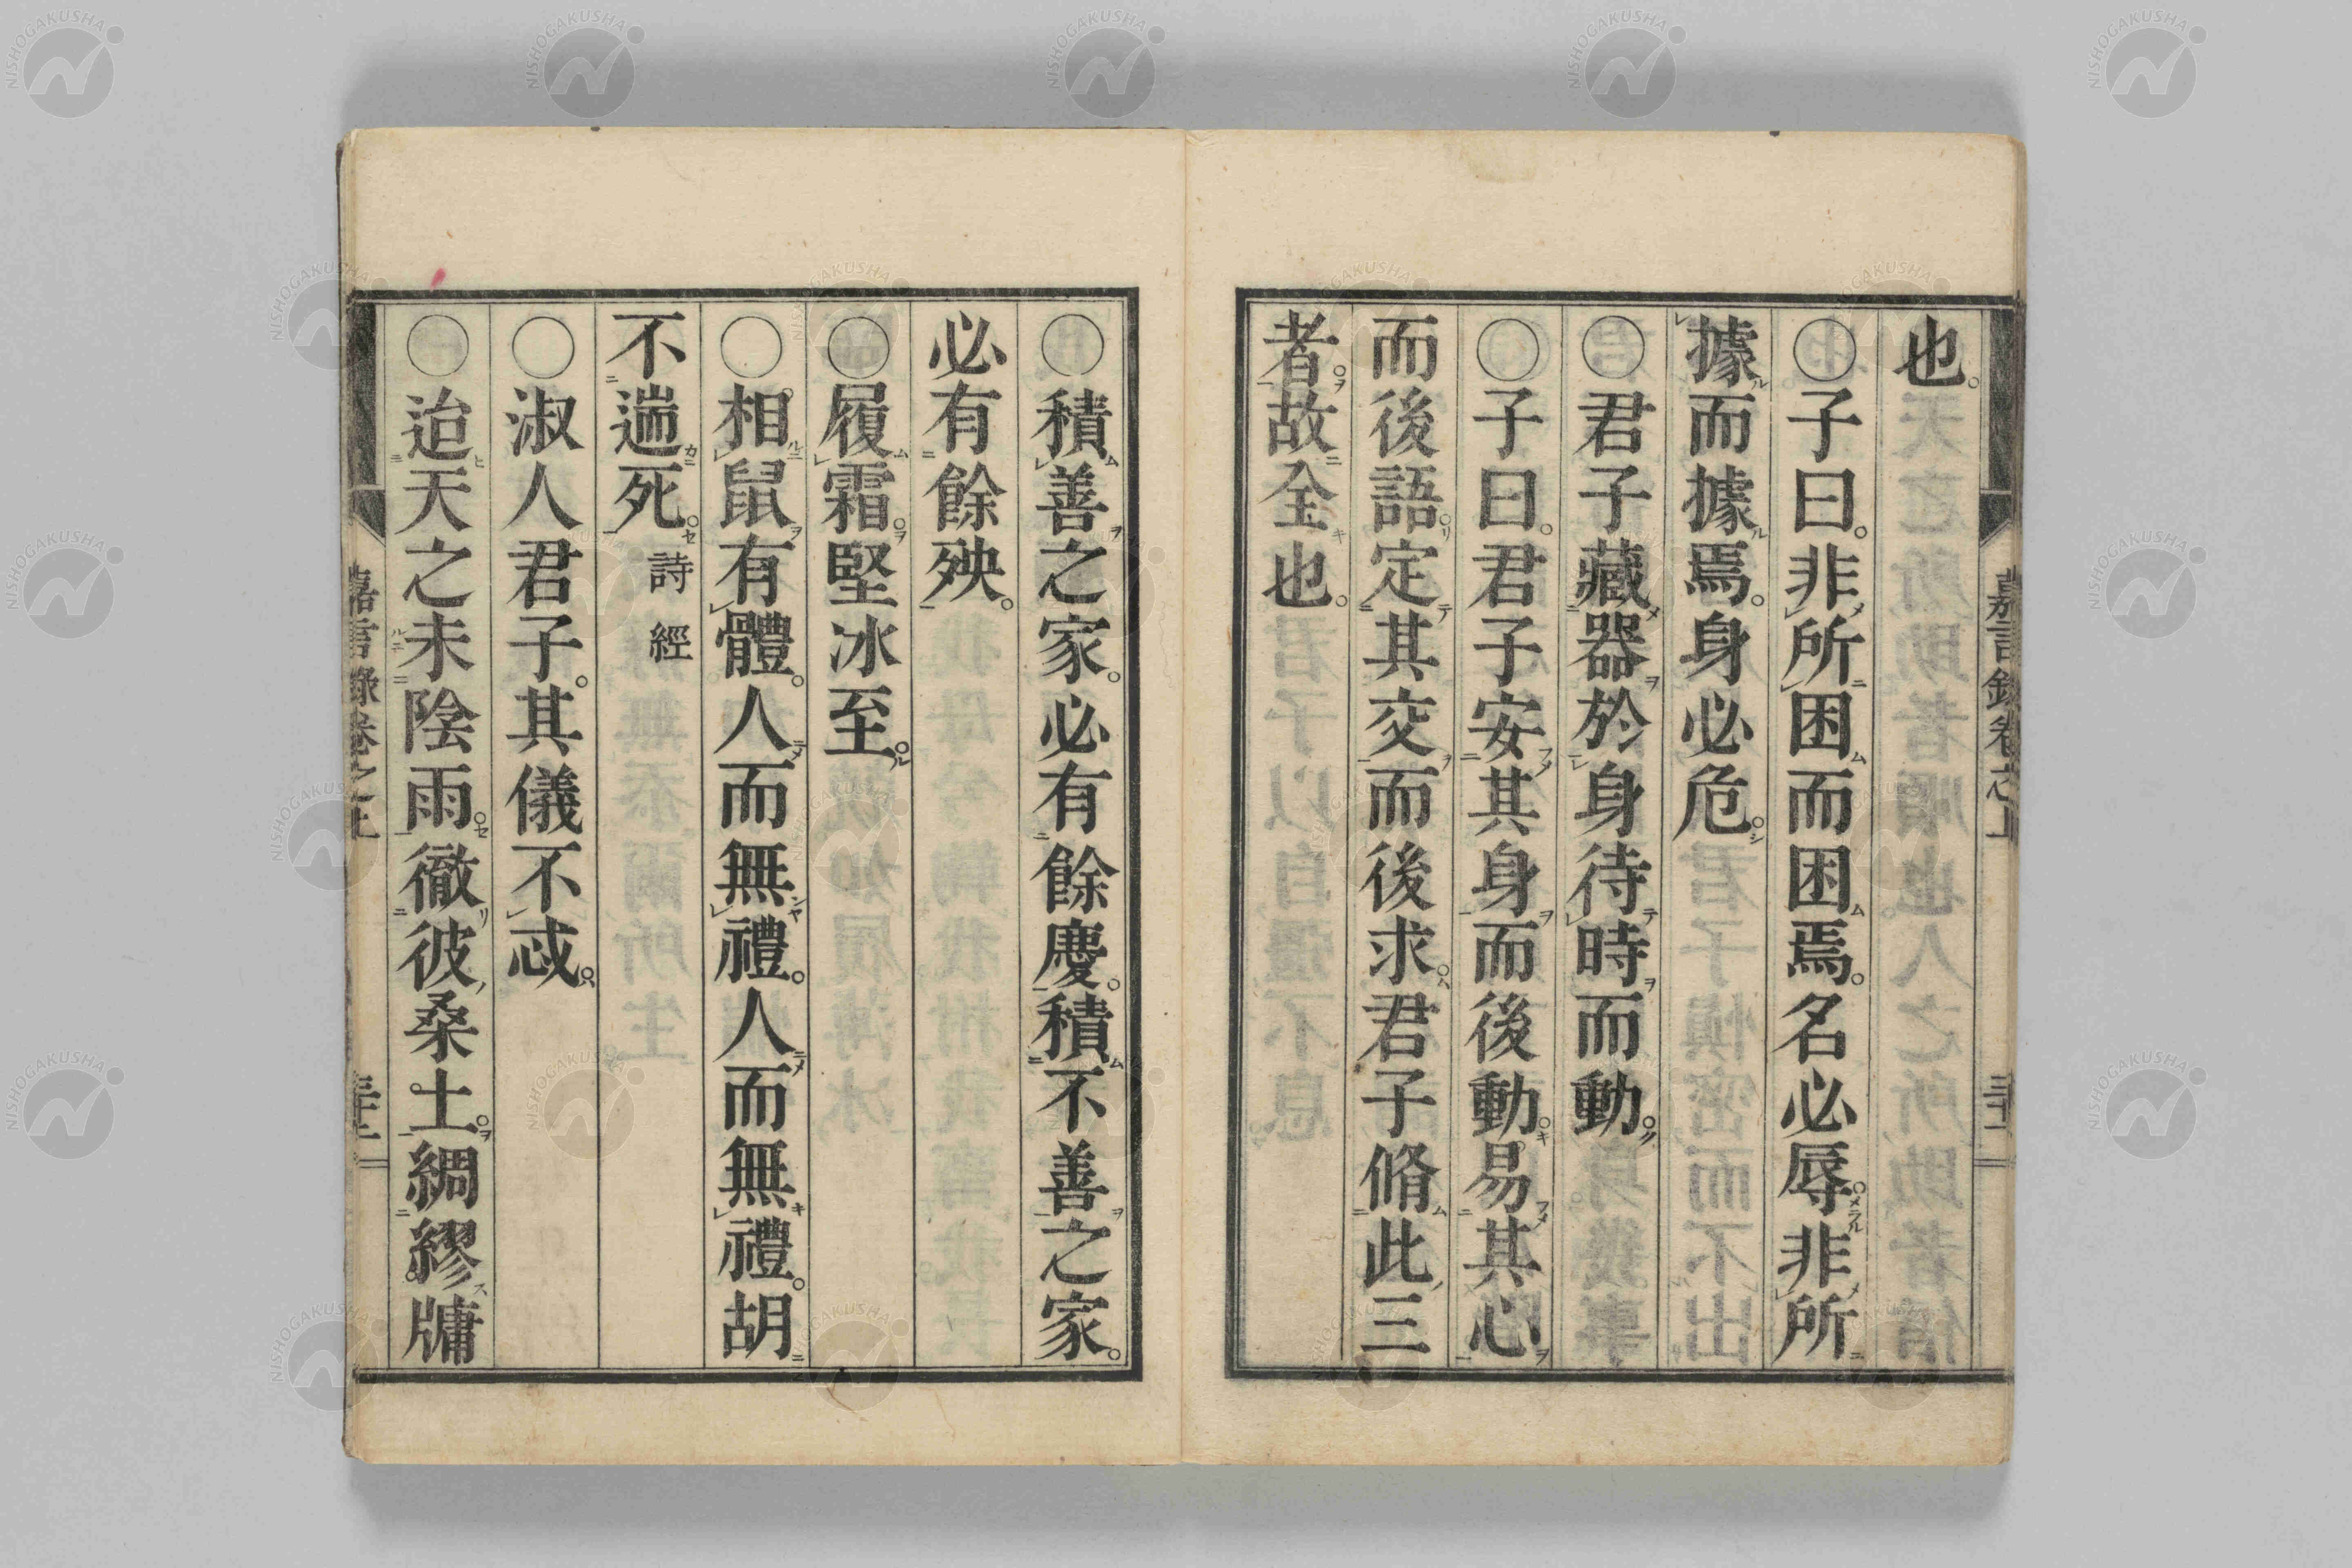 也。
○子曰。非所困而困焉。名必辱。非所
據而據焉。身必危。
○君子藏器於身待時而動。
○子曰。君子安其身而後動。易其心
而後語。定其交而後求。君子脩此三
者。故全也。
嘉言錄卷之上
○積善之家。必有餘慶。積不善之家。
必有餘殃。
○履霜。堅冰至。
○相鼠有體。人而無禮。人而無禮。胡
不遄死。詩經
○淑人君子。其儀不忒。
○迨天之未陰雨。徹彼桑土。綢繆。牖
嘉言錄卷之上